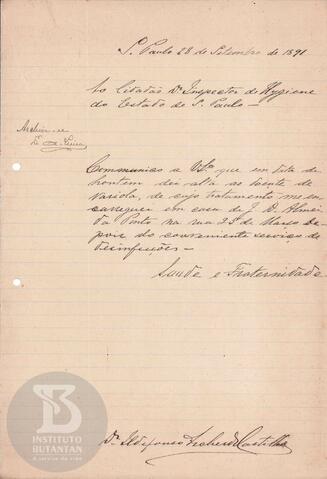 S. Paulo 28 de Setembro de 1891
Ao Cidadão Dr. Inspector de Hygiene
do Estado de S. Paulo —
Archive-se
Communico a V.Sa que em data de
hontem dei alta ao doente de
variola, de cujo tratamento me en
carreguei em casa de J. D. Almei
da Porto na rua 25 de Março de
pois do conveniente serviço de
desinfecções —
Saude e Fraternidade
Dr. Ildefonso de Castilho
INSTITUTO
BUTANTAN
A serviço da vida